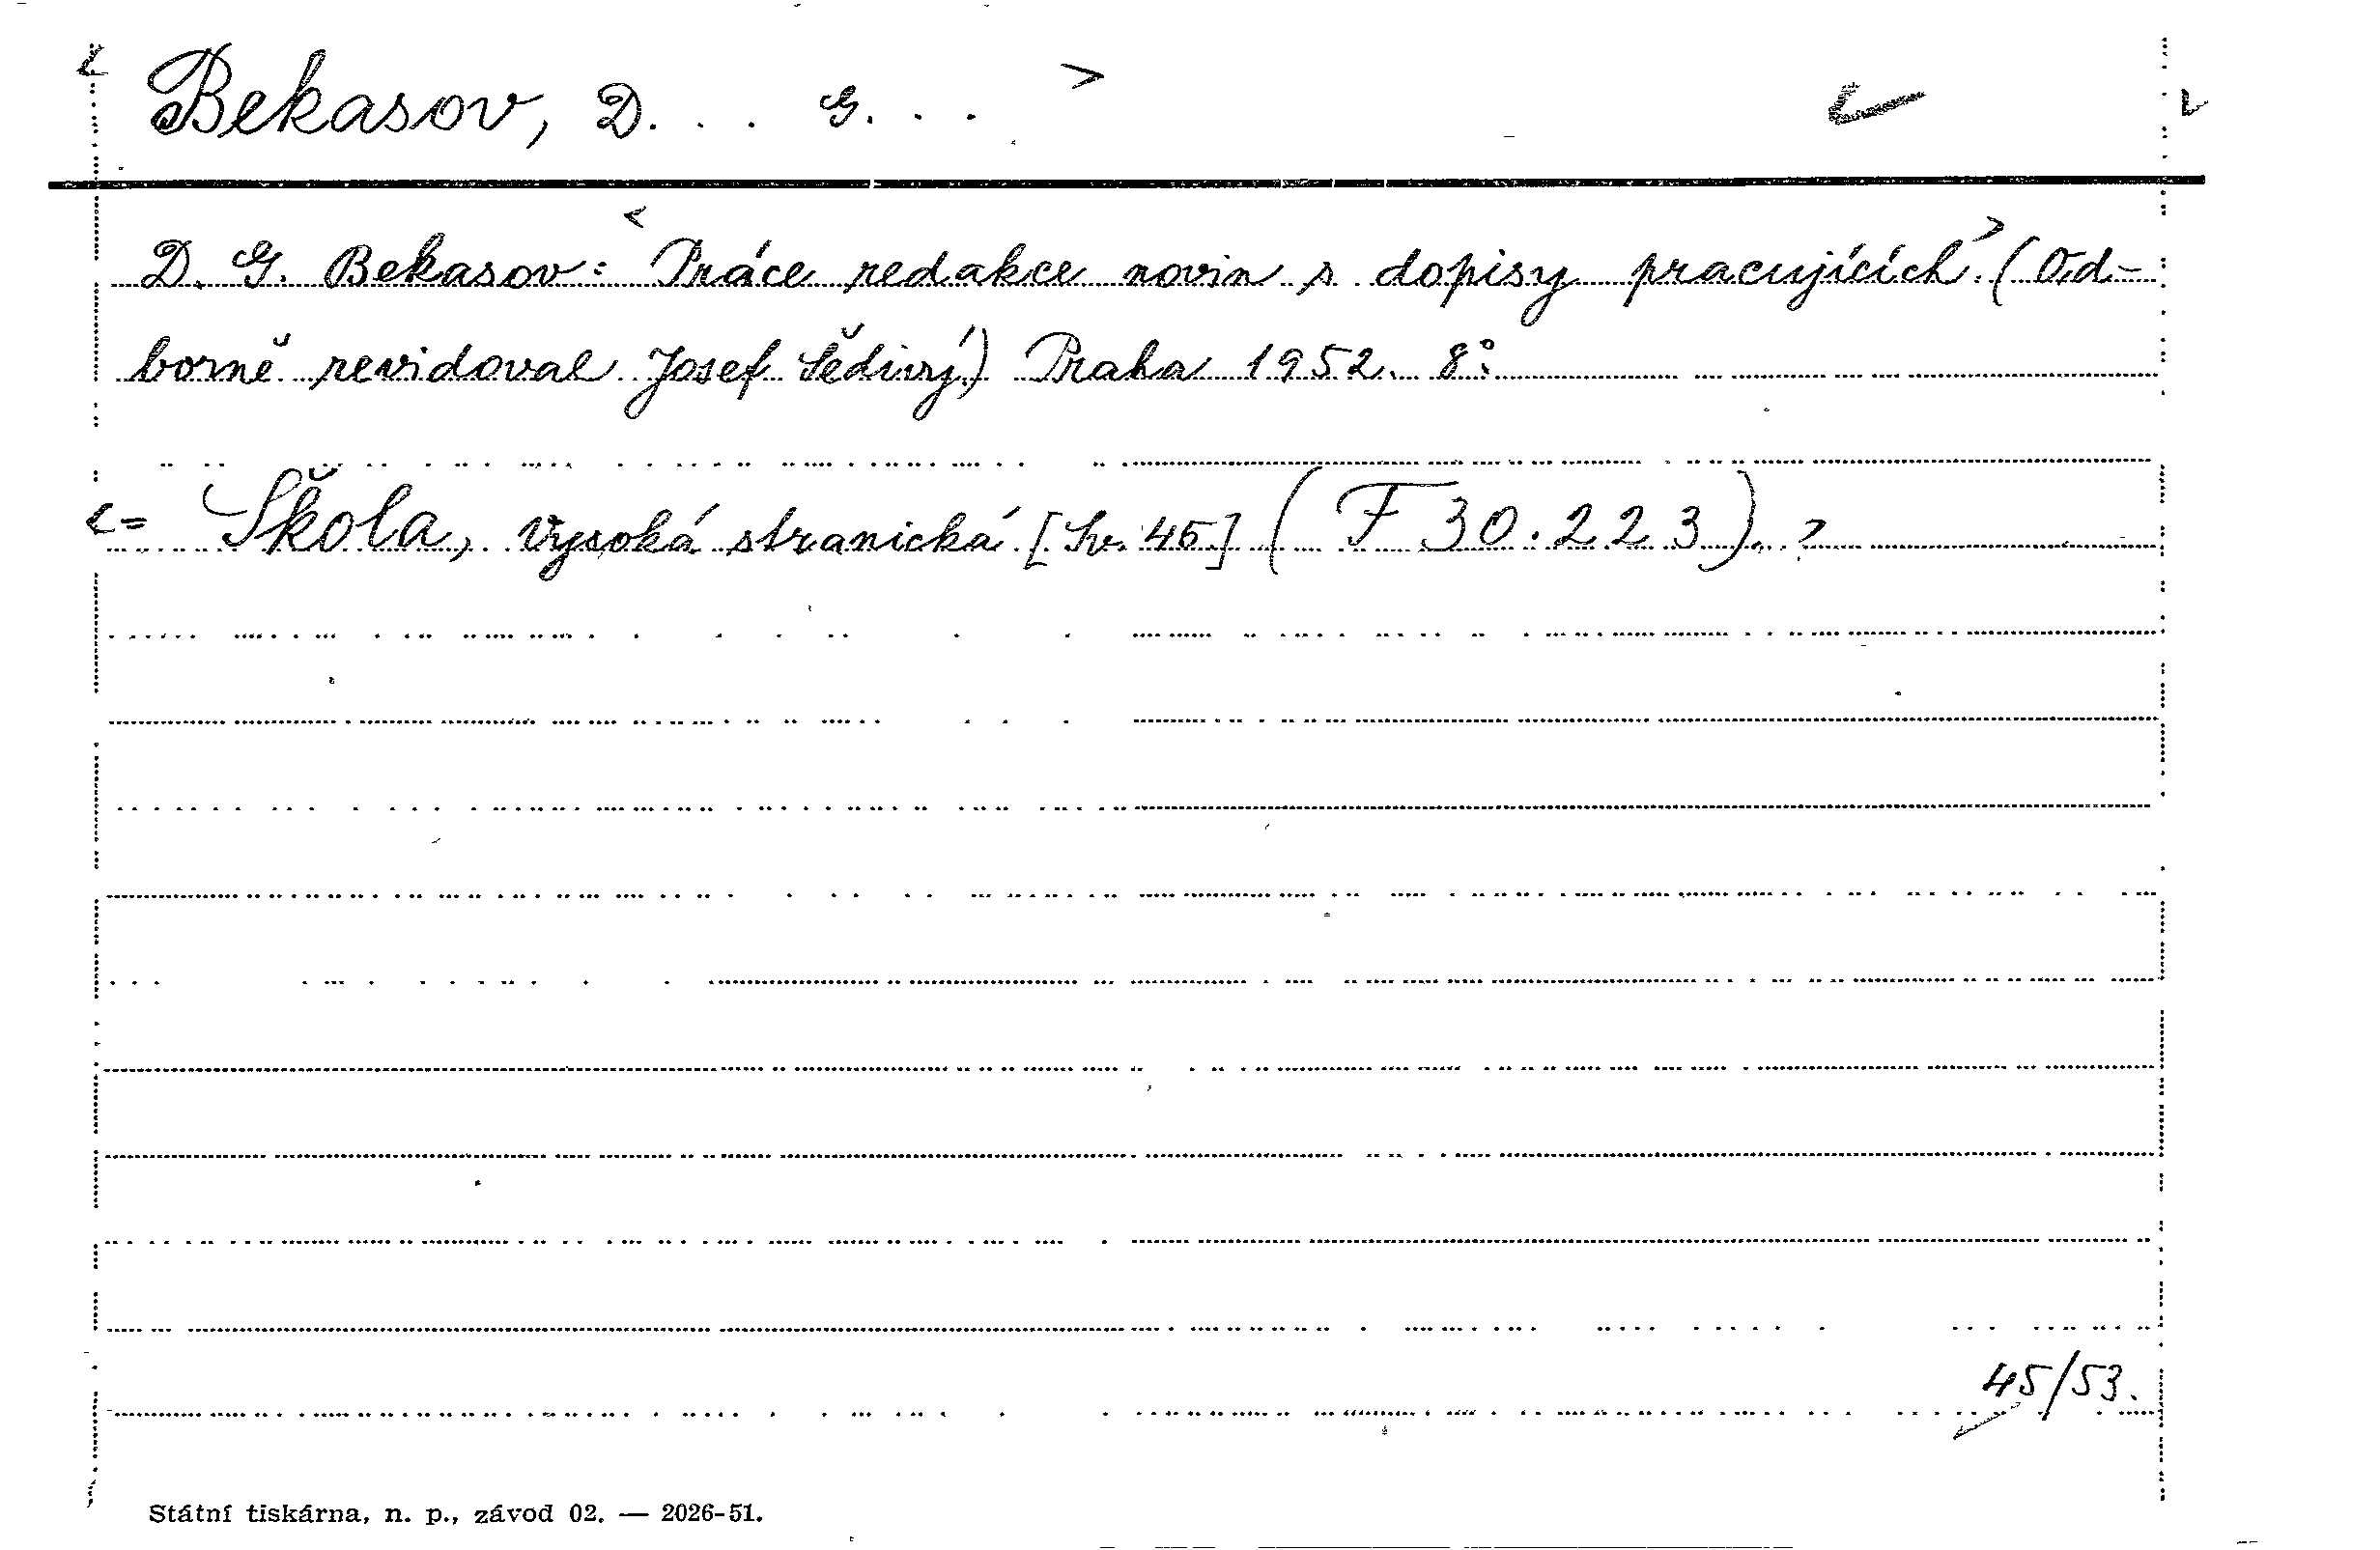 Bekasov, D. . . G. . .
D. G. Bekasov: Práce redakce novin s dopisy pracujících. (Od-
borně revidoval Josef Šědivý.) Praha 1952. 8°.
= Škola, vysoká stranická [Sv. 45] (F 30.223).
45/53.
Státní tiskárna, n. p., závod 02. — 2026-51.